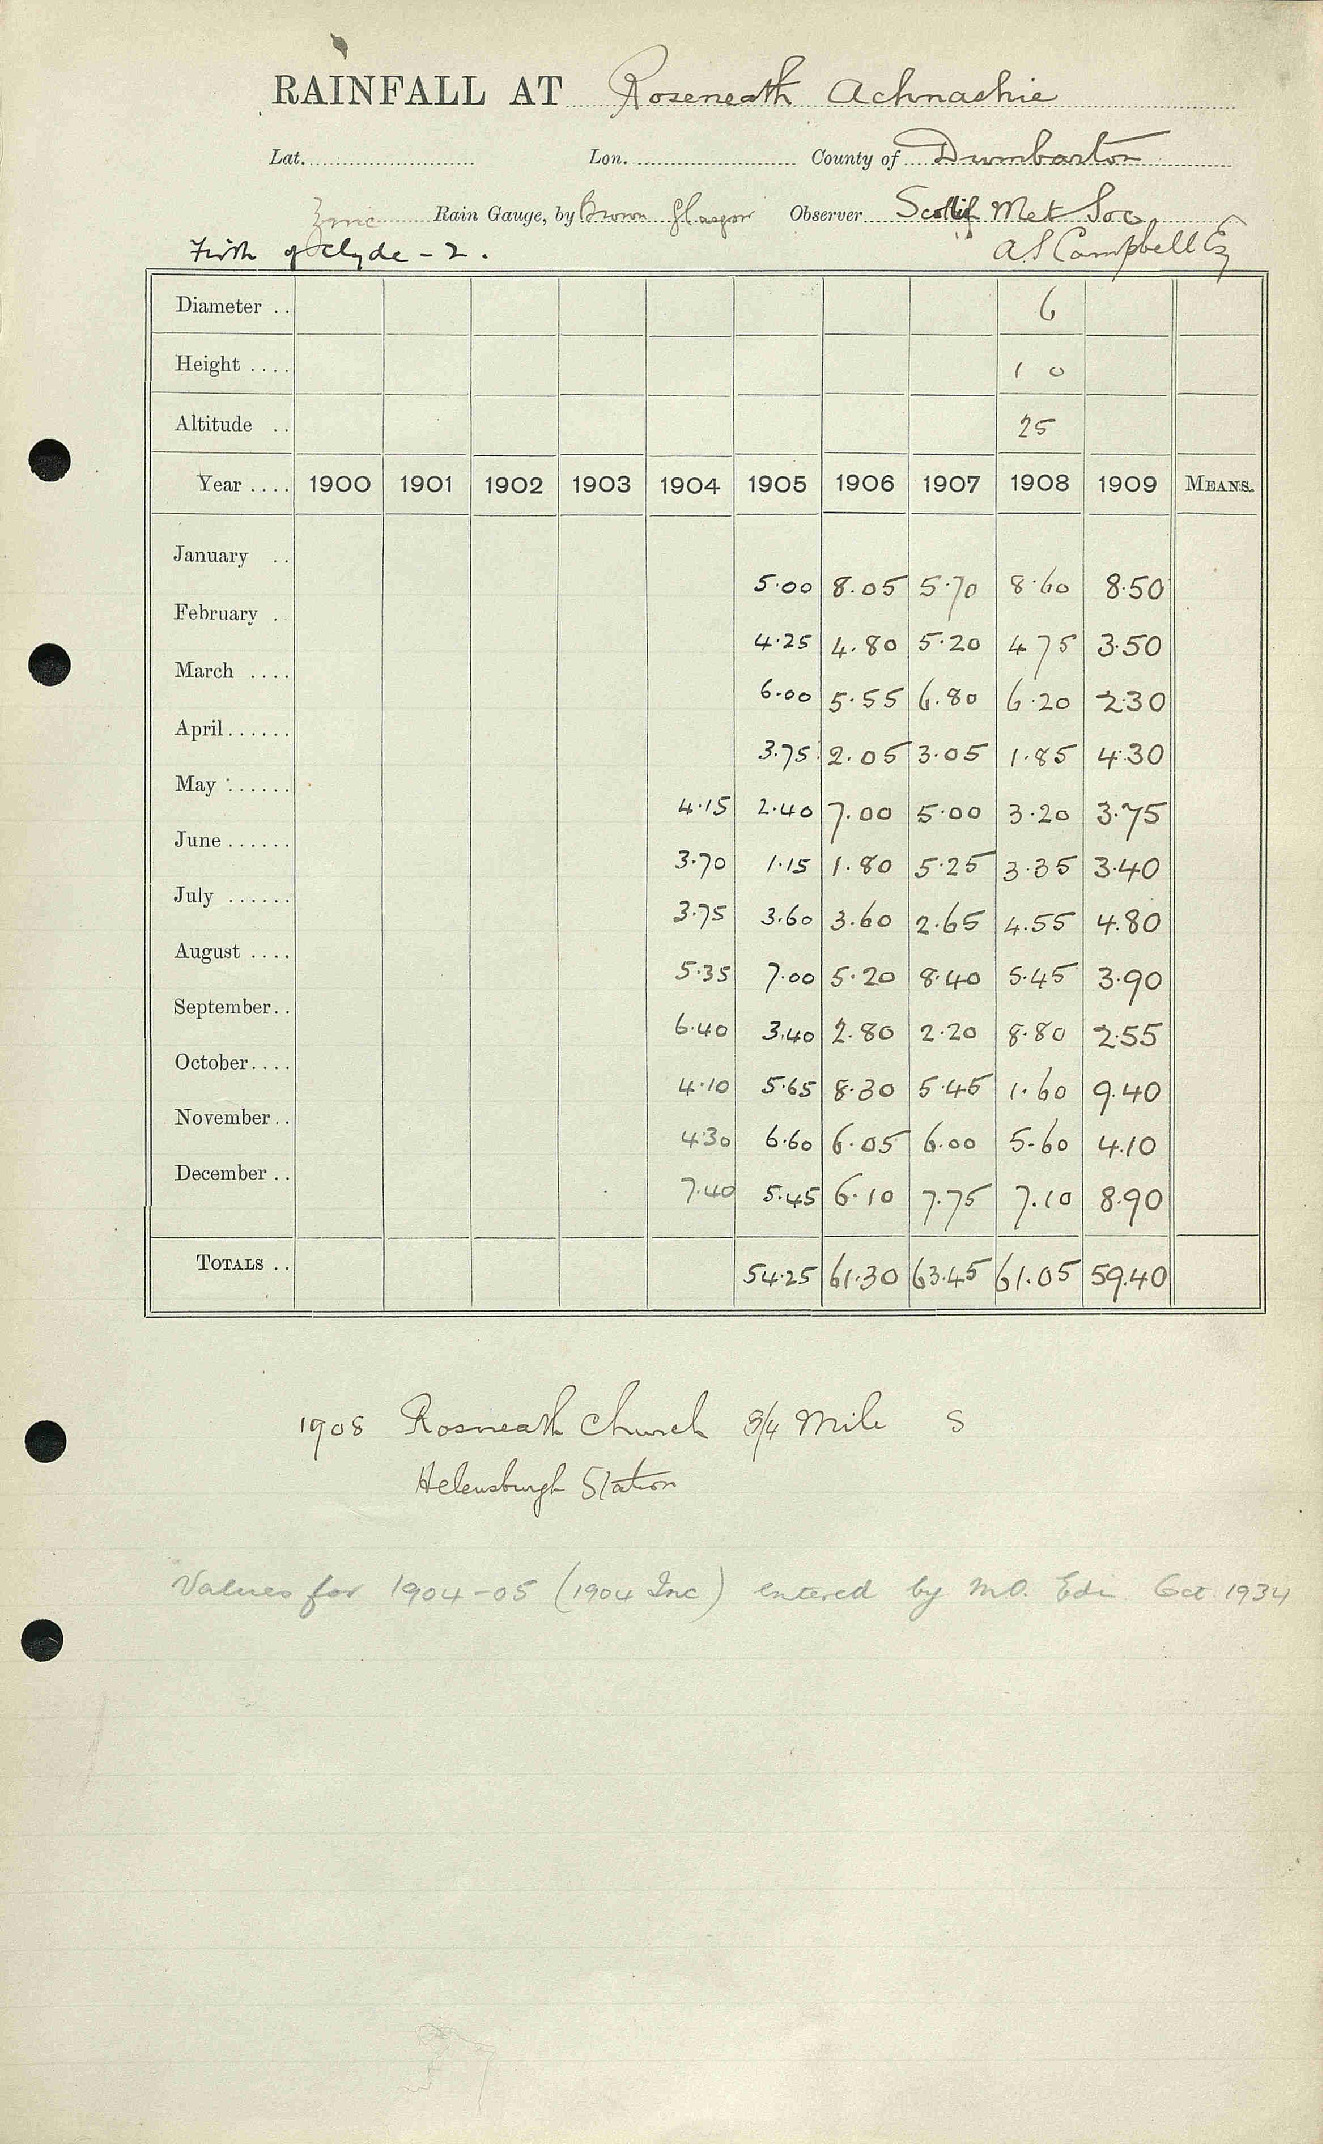 RAINFALL AT Roseneath Achnashie
Lat. Lon. County of Dumbarton
Zinc Rain Gauge, by Brown Glasgow Observer Scottish Met Soc
Firth of Clyde - 2. A. S Campbell Esq
Diameter .. 6
Height .... 1 0
Altitude .. 25
Year .... 1900 1901 1902 1903 1904 1905 1906 1907 1908 1909 MEANS.
January .. 5.00 8.05 5.70 8.60 8.50
February . 4.25 4.80 5.20 4.75 3.50
March .... 6.00 5.55 6.80 6.20 2.30
April...... 3.75 2.05 3.05 1.85 4.30
May ...... 4.15 2.40 7.00 5.00 3.20 3.75
June ...... 3.70 1.15 1.80 5.25 3.35 3.40
July ...... 3.75 3.60 3.60 2.65 4.55 4.80
August .... 5.35 7.00 5.20 8.40 5.45 3.90
September.. 6.40 3.40 2.80 2.20 8.80 2.55
October.... 4.10 5.65 8.30 5.45 1.60 9.40
November.. 4.30 6.60 6.05 6.00 5.60 4.10
December .. 7.40 5.45 6.10 7.75 7.10 8.90
TOTALS .. 54.25 61.30 63.45 61.05 59.40
1908 Rosneath Church 3/4 Mile S
Helensburgh Station
Values for 1904-05 (1904 Inc) entered by M.O. Edin. Oct. 1934